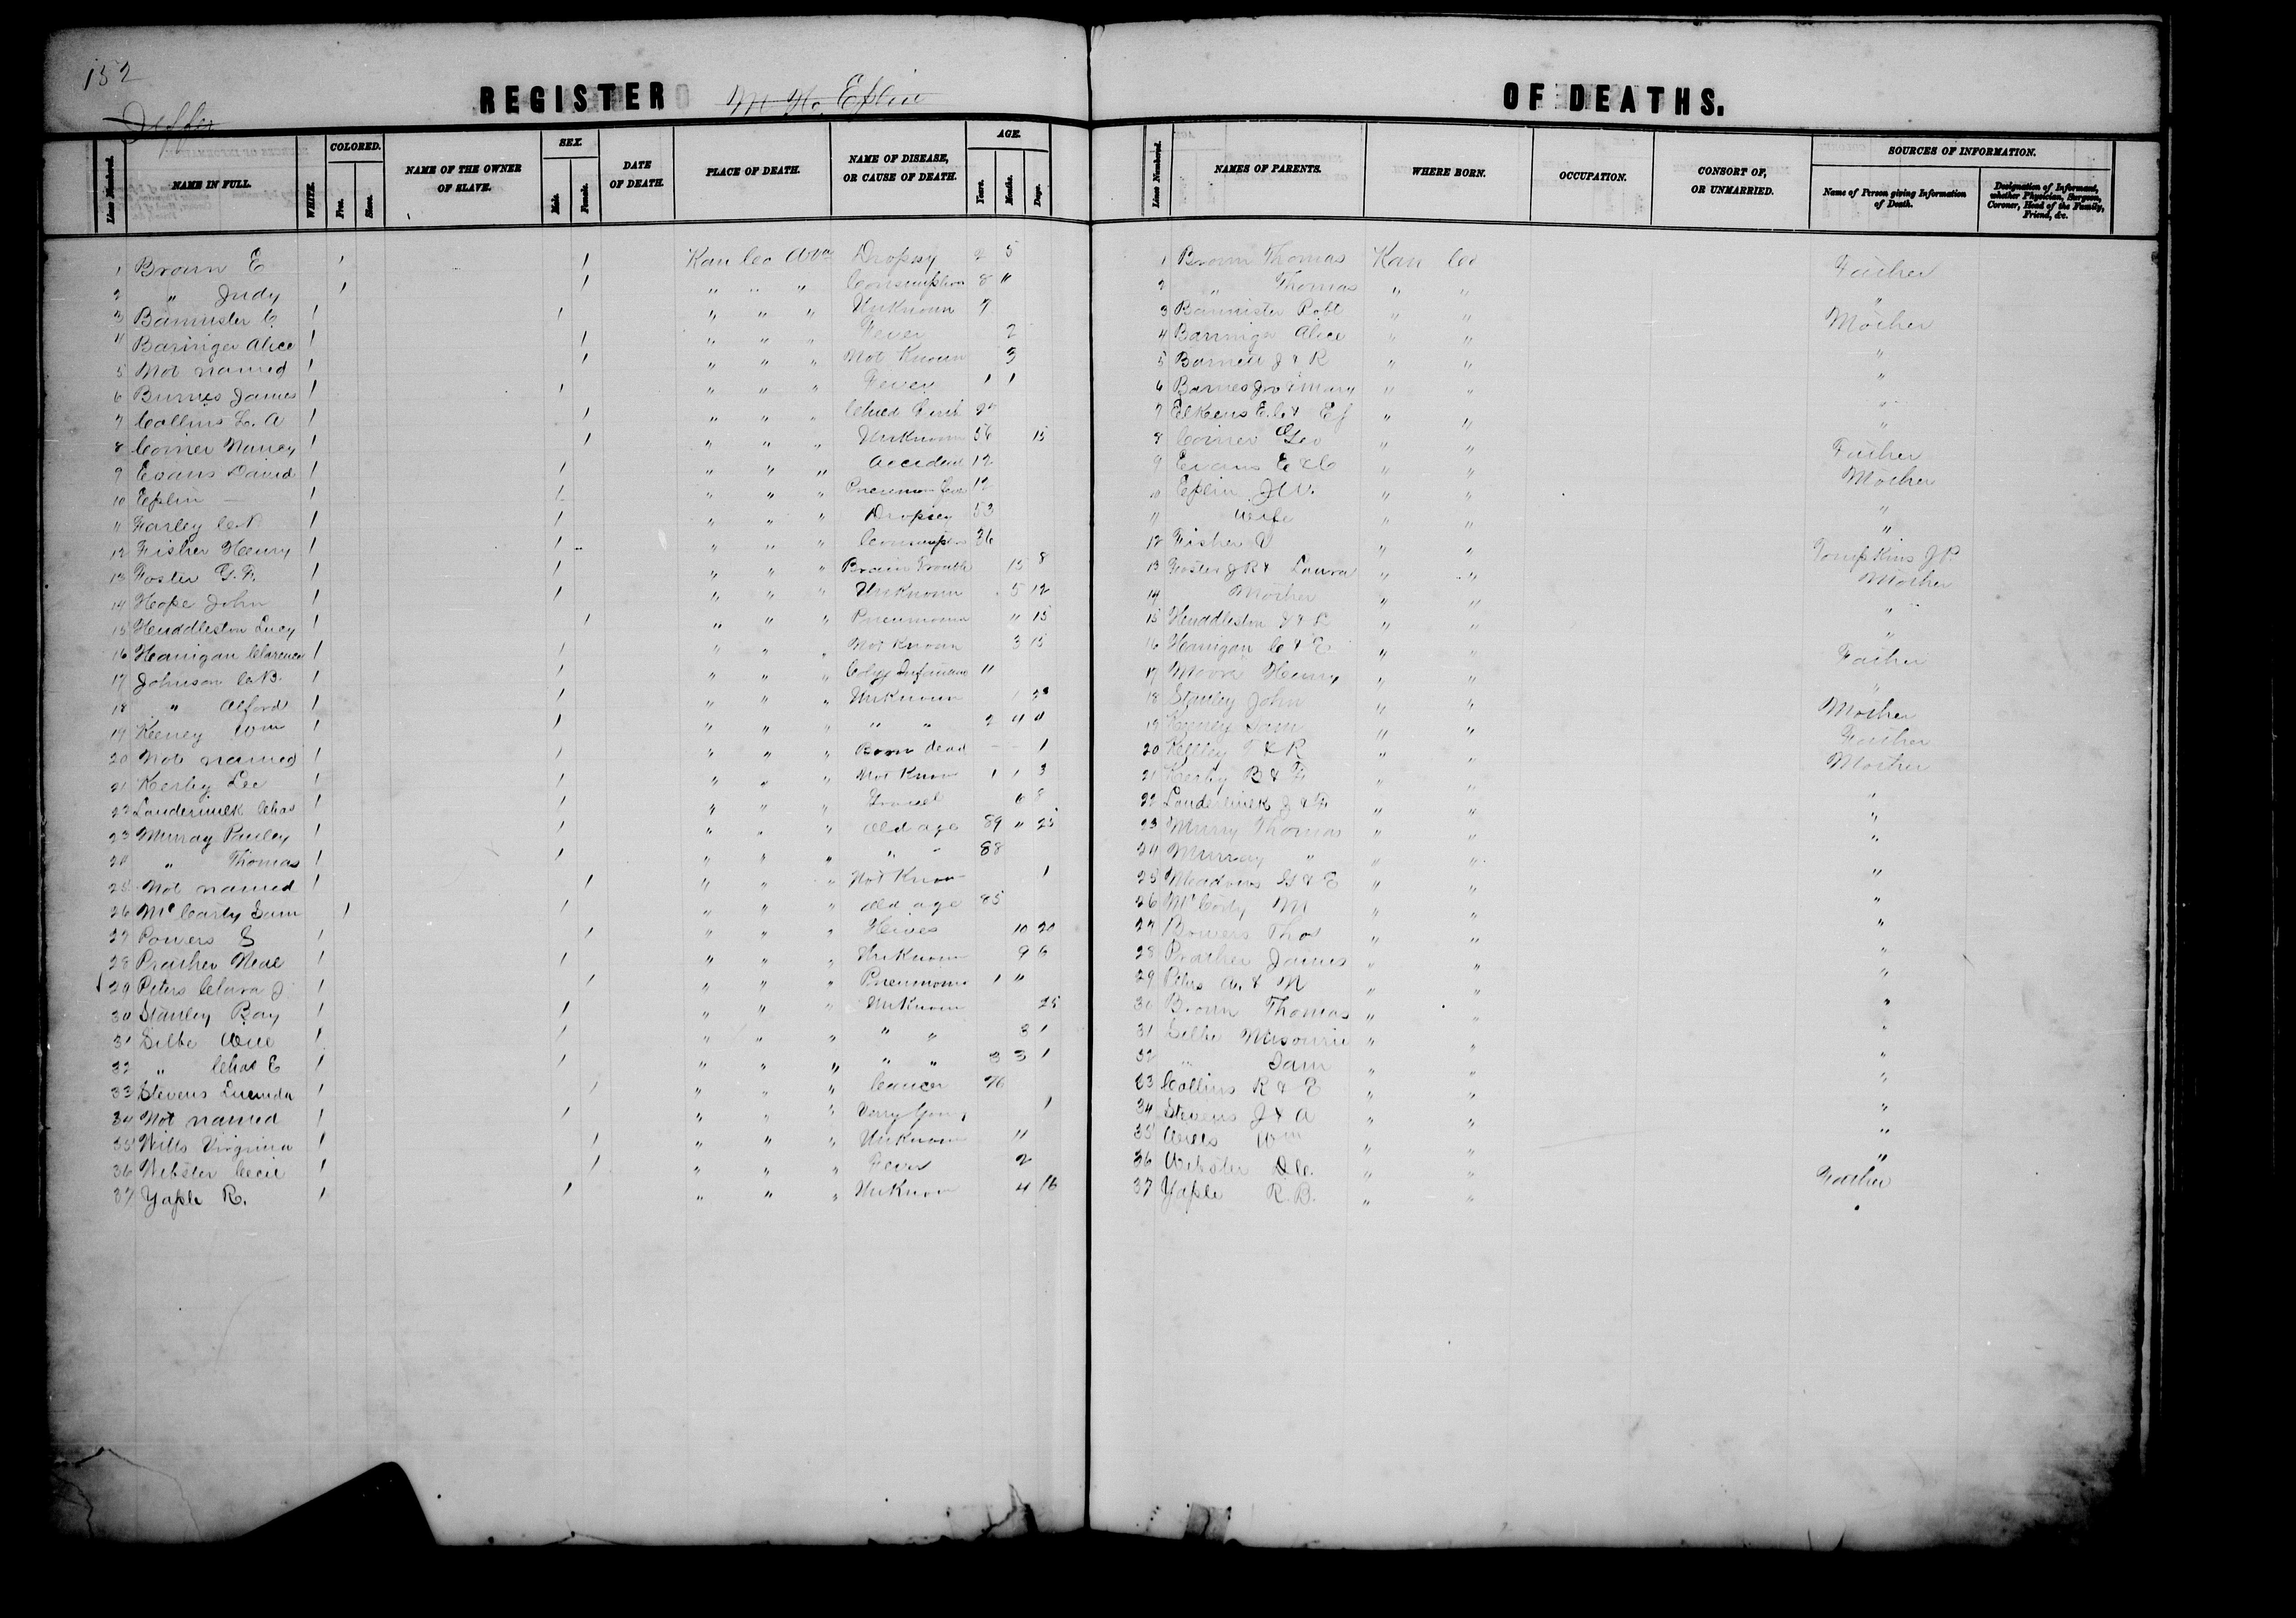 152
Jeffer
REGISTER M. H. Eplin OF DEATHS.
Line Numbered. NAME IN FULL. WHITE. COLORED. Free. Slave. NAME OF THE OWNER OF SLAVE. SEX. Male. Female. DATE OF DEATH. PLACE OF DEATH. NAME OF DISEASE, OR CAUSE OF DEATH. AGE. Years. Months. Days. Line Numbered. NAMES OF PARENTS. WHERE BORN. OCCUPATION. CONSORT OF, OR UNMARRIED. SOURCES OF INFORMATION. Name of Person giving Information of Death. Designation of Informant, whether Physician, Surgeon, Coroner, Head of the Family, Friend, &c.
1 Brown E 1 1 Kan Co Dropsy 2 5 1 Brown Thomas Kan Co Father
2 " Judy 1 1 " " " Consumption 8 " 2 " Thomas " " "
3 Bannister C. 1 1 " " " Unknown 7 3 Bannister Robt " " Mother
4 Baringer Alice 1 1 " " " Fever 2 4 Barringer Alice " " "
5 Not named 1 1 " " " Not Known 3 5 Barnett J & R " " "
6 Burnes James 1 1 " " " Fever 1 1 6 Barnes Jno & Mary " " "
7 Collins L. A 1 1 " " " Child 20 7 Elkens E. C & E J " " "
8 Comer Nancy 1 1 " " " Unknown 56 15 8 Comer Geo " " Father
9 Evans David 1 1 " " " Accident 12 9 Evans E & C " " Mother
10 Eplin — 1 1 " " " 12 10 Eplin J W. " " "
11 Farley 1 1 " " " Dropsey 53 11 Wife " " "
12 Fisher Henry 1 1 " " " Consumption 36 12 Fisher " " Tompkins J P.
13 Foster G. F. 1 1 " " " Brain Trouble 15 8 13 Foster J R & Laura " " Mother
14 Hope John 1 1 " " " Unknown 5 12 14 Mother " " "
15 Huddleston Lucy 1 1 " " " Pneumonia " 15 15 Huddleston J & L " " "
16 Hanigan Clarence 1 1 " " " Not Known 3 15 16 Hanigan C & E " " Father
17 Johnson C. B. 1 1 " " " 11 17 Moore Henry " " "
18 " Alford 1 1 " " " Unknown 1 18 Stanley John " " Mother
19 Keeney Wm 1 1 " " " " " 2 4 4 19 Keeney Sam " " Father
20 Not named 1 1 " " " Born dead – – 1 20 Kelley T & R " " Mother
21 Kerby Lee 1 1 " " " Not Know 1 1 3 21 Kerby B & F " " "
22 Loudermelk Chas 1 1 " " " 6 8 22 Loudermilk J & F " " "
23 Murray Pauley 1 1 " " " Old age 89 " 25 23 Murry Thomas " " "
24 " Thomas 1 1 " " " " " 88 24 Murray " " " "
25 Not named 1 1 " " " Not Know 1 25 Meadows G & E " " "
26 McCarty Sam 1 1 " " " Old age 85 26 McCarty M " " "
27 Powers S 1 1 " " " Hives 10 20 27 Bowers Thos " " "
28 Prather Neal 1 1 " " " Unknown 9 6 28 Prather James " " "
29 Peters Clara J 1 1 " " " Pneumonia 1 " 29 Peters A. & M " " "
30 Stanley Ray 1 1 " " " Unknown 25 30 Brown Thomas " " "
31 Silbe Will 1 1 " " " " " 3 1 31 Silbe Missouri " " "
32 " Chas E 1 1 " " " " " 3 3 1 32 " Sam " " "
33 Stevens Lucinda 1 1 " " " Cancer 33 Collins R & E " " "
34 Not named 1 1 " " " Very Young 1 34 Stevens J & A " " "
35 Wills Virginia 1 1 " " " Unknown 11 35 Wills Wm " " "
36 Webster Cecil 1 1 " " " Fever 2 36 Webster " " "
37 Yaple R. 1 1 " " " Unknown 4 16 37 Yaple R. B. " " Father